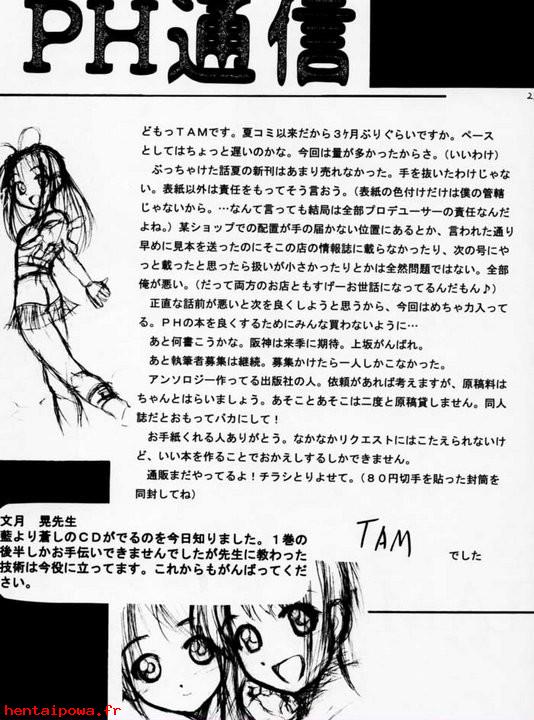 PH通信
2
どもっＴＡＭです。夏コミ以来だから３ｹ月ぶりぐらいですか。ペース
としてはちょっと遅いのかな。今回は量が多かったからさ。（いいわけ）
ぶっちゃけた話夏の新刊はあまり売れなかった。手を抜いたわけじゃな
い。表紙以外は責任をもってそう言おう。（表紙の色付けだけは僕の管轄
じゃないから。…なんて言っても結局は全部プロデューサーの責任なんだ
よね。）某ショップでの配置が手の届かない位置にあるとか、言われた通り
早めに見本を送ったのにそこの店の情報誌に載らなかったり、次の号にや
っと載ったと思ったら扱いが小さかったりとかは全然問題ではない。全部
俺が悪い。（だって両方のお店ともすげーお世話になってるんだもん♪）
正直な話前が悪いと次を良くしようと思うから、今回はめちゃ力入って
る。ＰＨの本を良くするためにみんな買わないように…
あと何書こうかな。阪神は来季に期待。上坂がんばれ。
あと執筆者募集は継続。募集かけたら一人しかこなかった。
アンソロジー作ってる出版社の人。依頼があれば考えますが、原稿料は
ちゃんとはらいましょう。あそことあそこは二度と原稿貸しません。同人
誌だとおもってバカにして！
お手紙くれる人ありがとう。なかなかリクエストにはこたえられないけ
ど、いい本を作ることでおかえしするしかできません。
通販まだやってるよ！チラシとりよせて。（８０円切手を貼った封筒を
同封してね）
TAM でした
文月　晃先生
藍より蒼しのＣＤがでるのを今日知りました。１巻の
後半しかお手伝いできませんでしたが先生に教わった
技術は今役に立ってます。これからもがんばってくだ
さい。
hentaipowa.fr